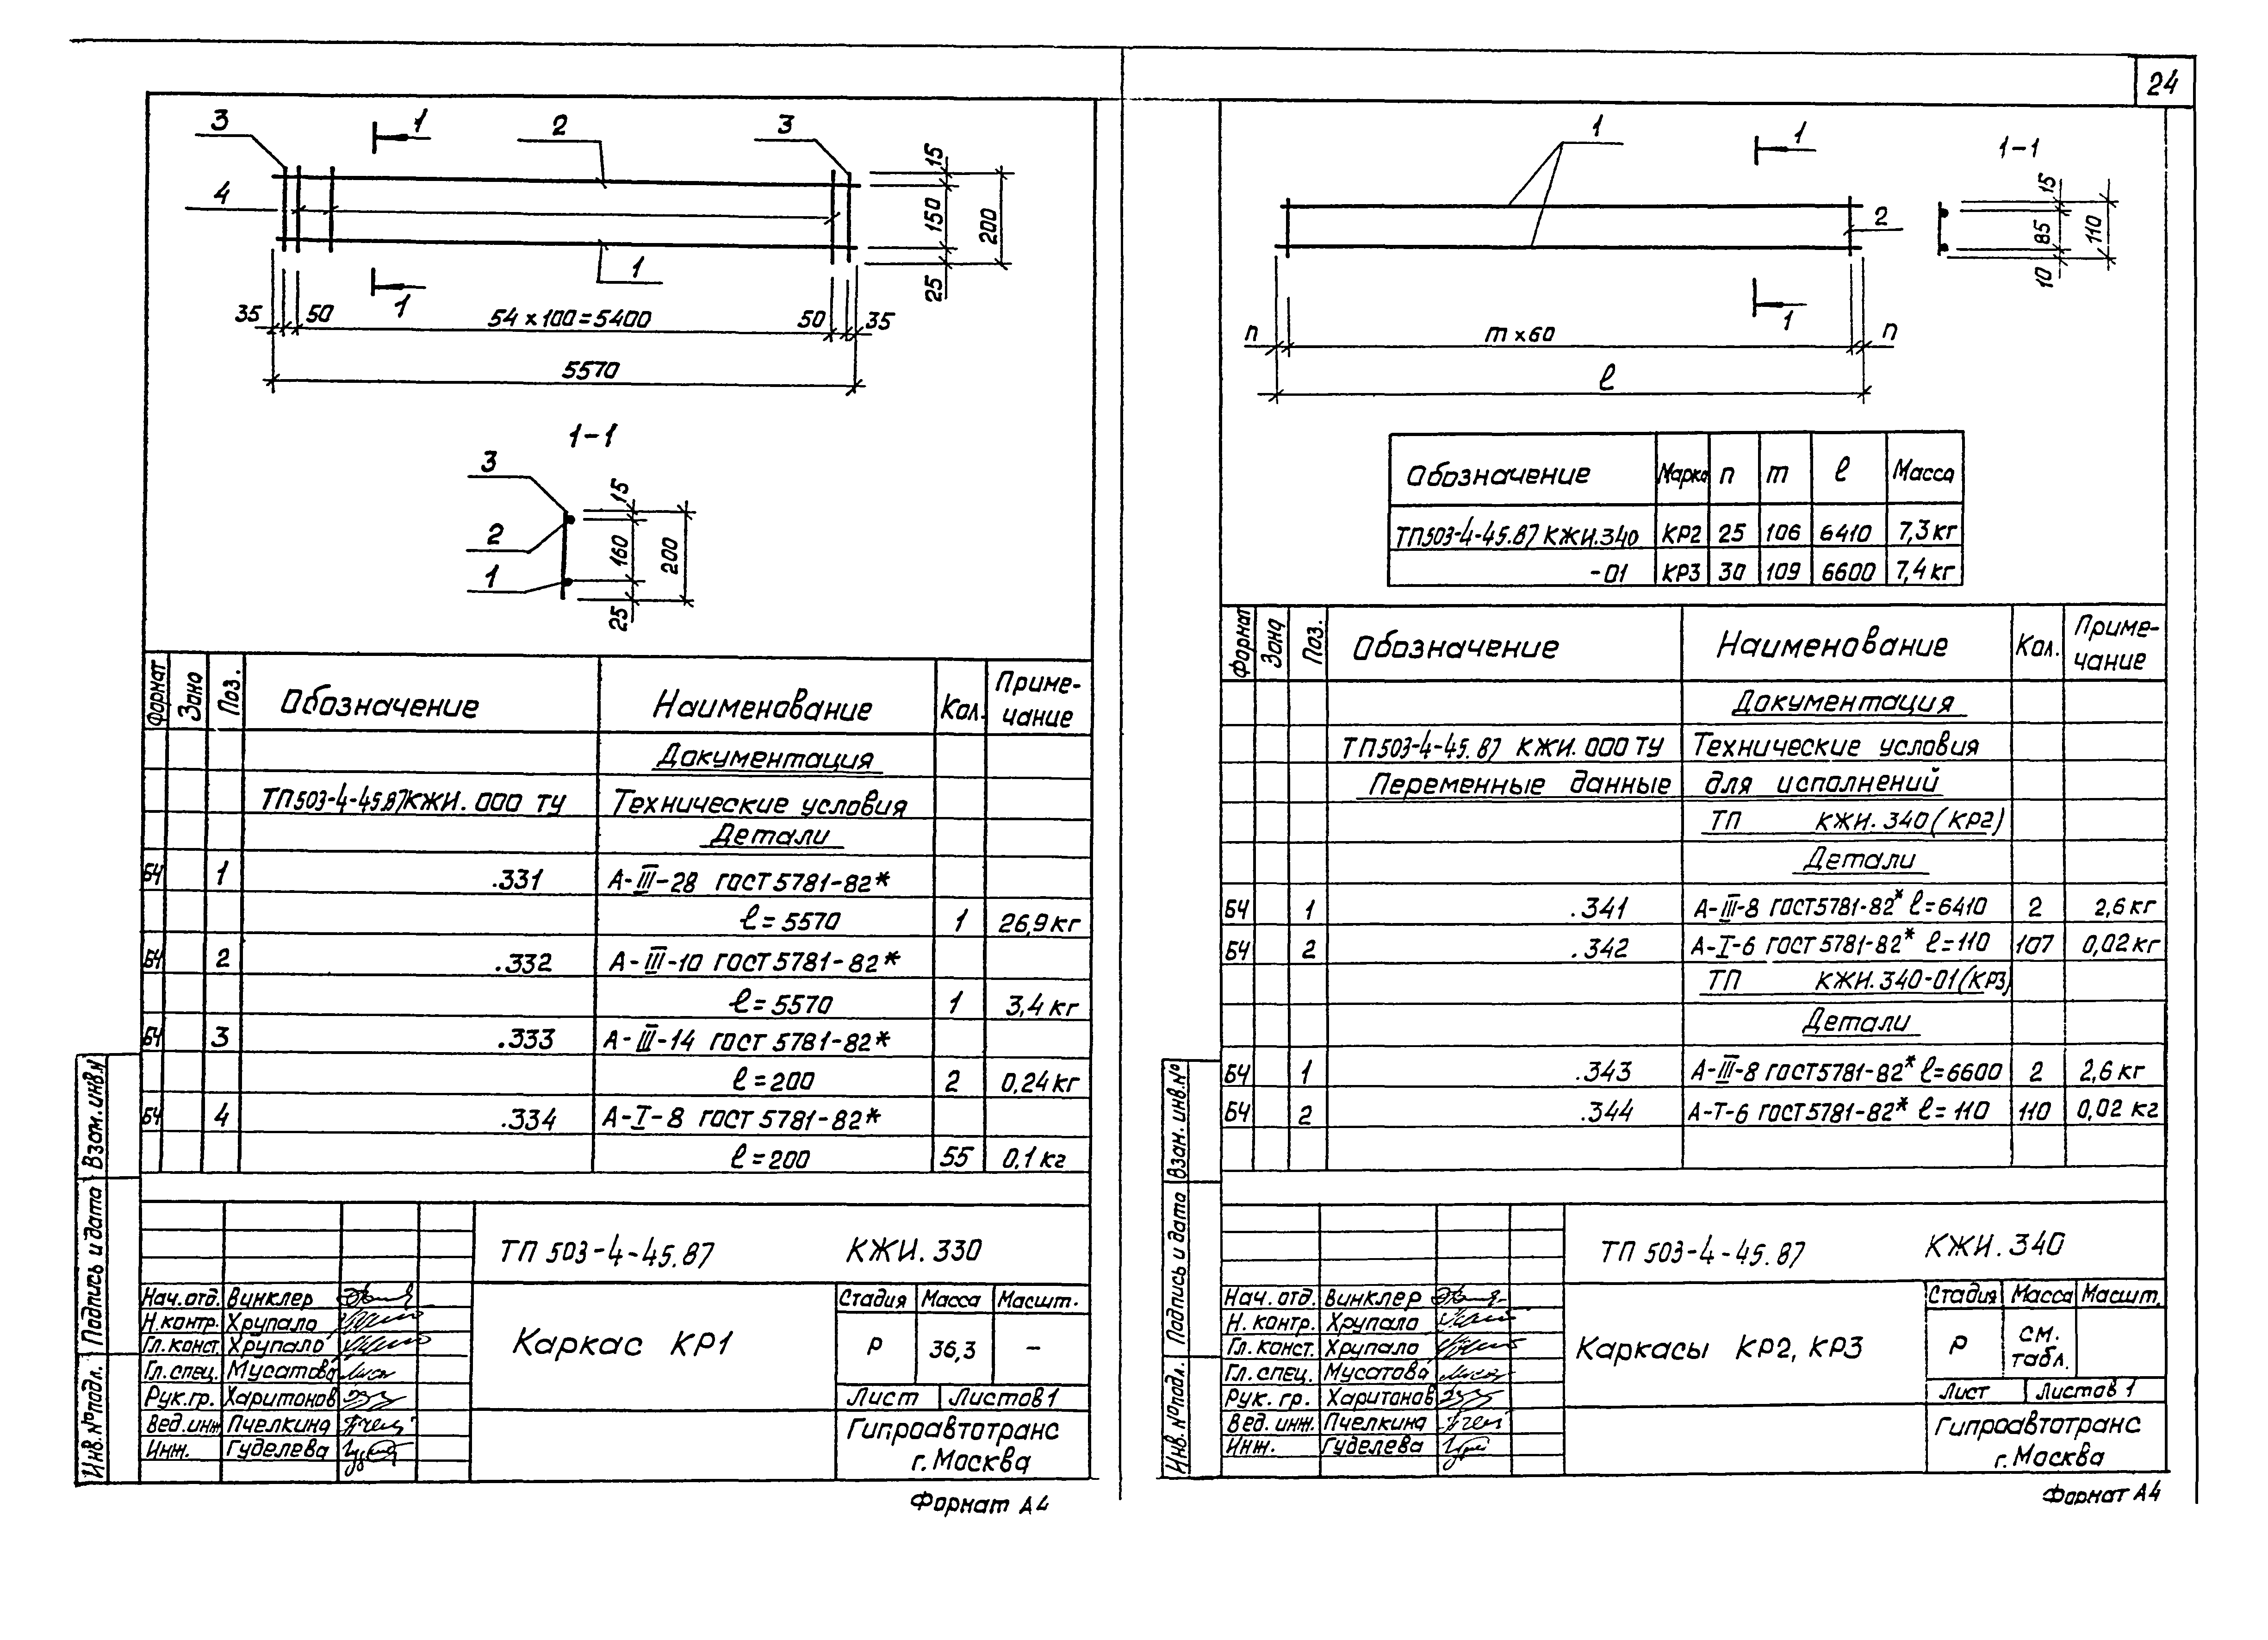 24
3
1
2
3
4
1
1
15
150
200
25
35
50
54 × 100 = 5400
50
35
5570
1-1
3
2
1
15
160
200
25
Формат
Зона
Поз.
Обозначение
Наименование
Кол.
Приме-
чание
Документация
ТП503-4-45.87КЖИ.000 ТУ Технические условия
Детали
БЧ 1 .331 А-III-28 ГОСТ 5781-82*
ℓ=5570 1 26,9 кг
БЧ 2 .332 А-III-10 ГОСТ 5781-82*
ℓ=5570 1 3,4 кг
БЧ 3 .333 А-III-14 ГОСТ 5781-82*
ℓ=200 2 0,24 кг
БЧ 4 .334 А-I-8 ГОСТ 5781-82*
ℓ=200 55 0,1 кг
Взам. инв.№
Подпись и дата
Инв.№подл.
ТП 503-4-45.87 КЖИ.330
Нач.отд. Винклер
Н.контр. Хрупало
Гл.конст. Хрупало
Гл.спец. Мусатова
Рук.гр. Харитонов
Вед.инж Пчелкина
Инж. Гуделева
Каркас КР1
Стадия Масса Масшт.
Р 36,3 –
Лист Листов 1
Гипроавтотранс
г. Москва
Формат А4
1
1
1-1
2
1
15
85
110
10
n
m × 60
n
ℓ
Обозначение Марка n m ℓ Масса
ТП503-4-45.87 КЖИ.340 КР2 25 106 6410 7,3 кг
-01 КР3 30 109 6600 7,4 кг
Формат
Зона
Поз.
Обозначение
Наименование
Кол.
Приме-
чание
Документация
ТП503-4-45.87 КЖИ.000 ТУ Технические условия
Переменные данные для исполнений
ТП КЖИ.340 (КР2)
Детали
БЧ 1 .341 А-III-8 ГОСТ5781-82* ℓ=6410 2 2,6 кг
БЧ 2 .342 А-I-6 ГОСТ 5781-82* ℓ=110 107 0,02 кг
ТП КЖИ.340-01(КР3)
Детали
БЧ 1 .343 А-III-8 ГОСТ5781-82* ℓ=6600 2 2,6 кг
БЧ 2 .344 А-Т-6 ГОСТ5781-82* ℓ=110 110 0,02 кг
Взан. инв.№
Подпись и дата
Инв.№подл.
ТП 503-4-45.87 КЖИ.340
Нач.отд. Винклер
Н.контр. Хрупало
Гл.конст. Хрупало
Гл.спец. Мусатова
Рук.гр. Харитонов
Вед.инж. Пчелкина
Инж. Гуделева
Каркасы КР2, КР3
Стадия Масса Масшт.
Р см.
табл.
Лист Листов 1
Гипроавтотранс
г. Москва
Формат А4